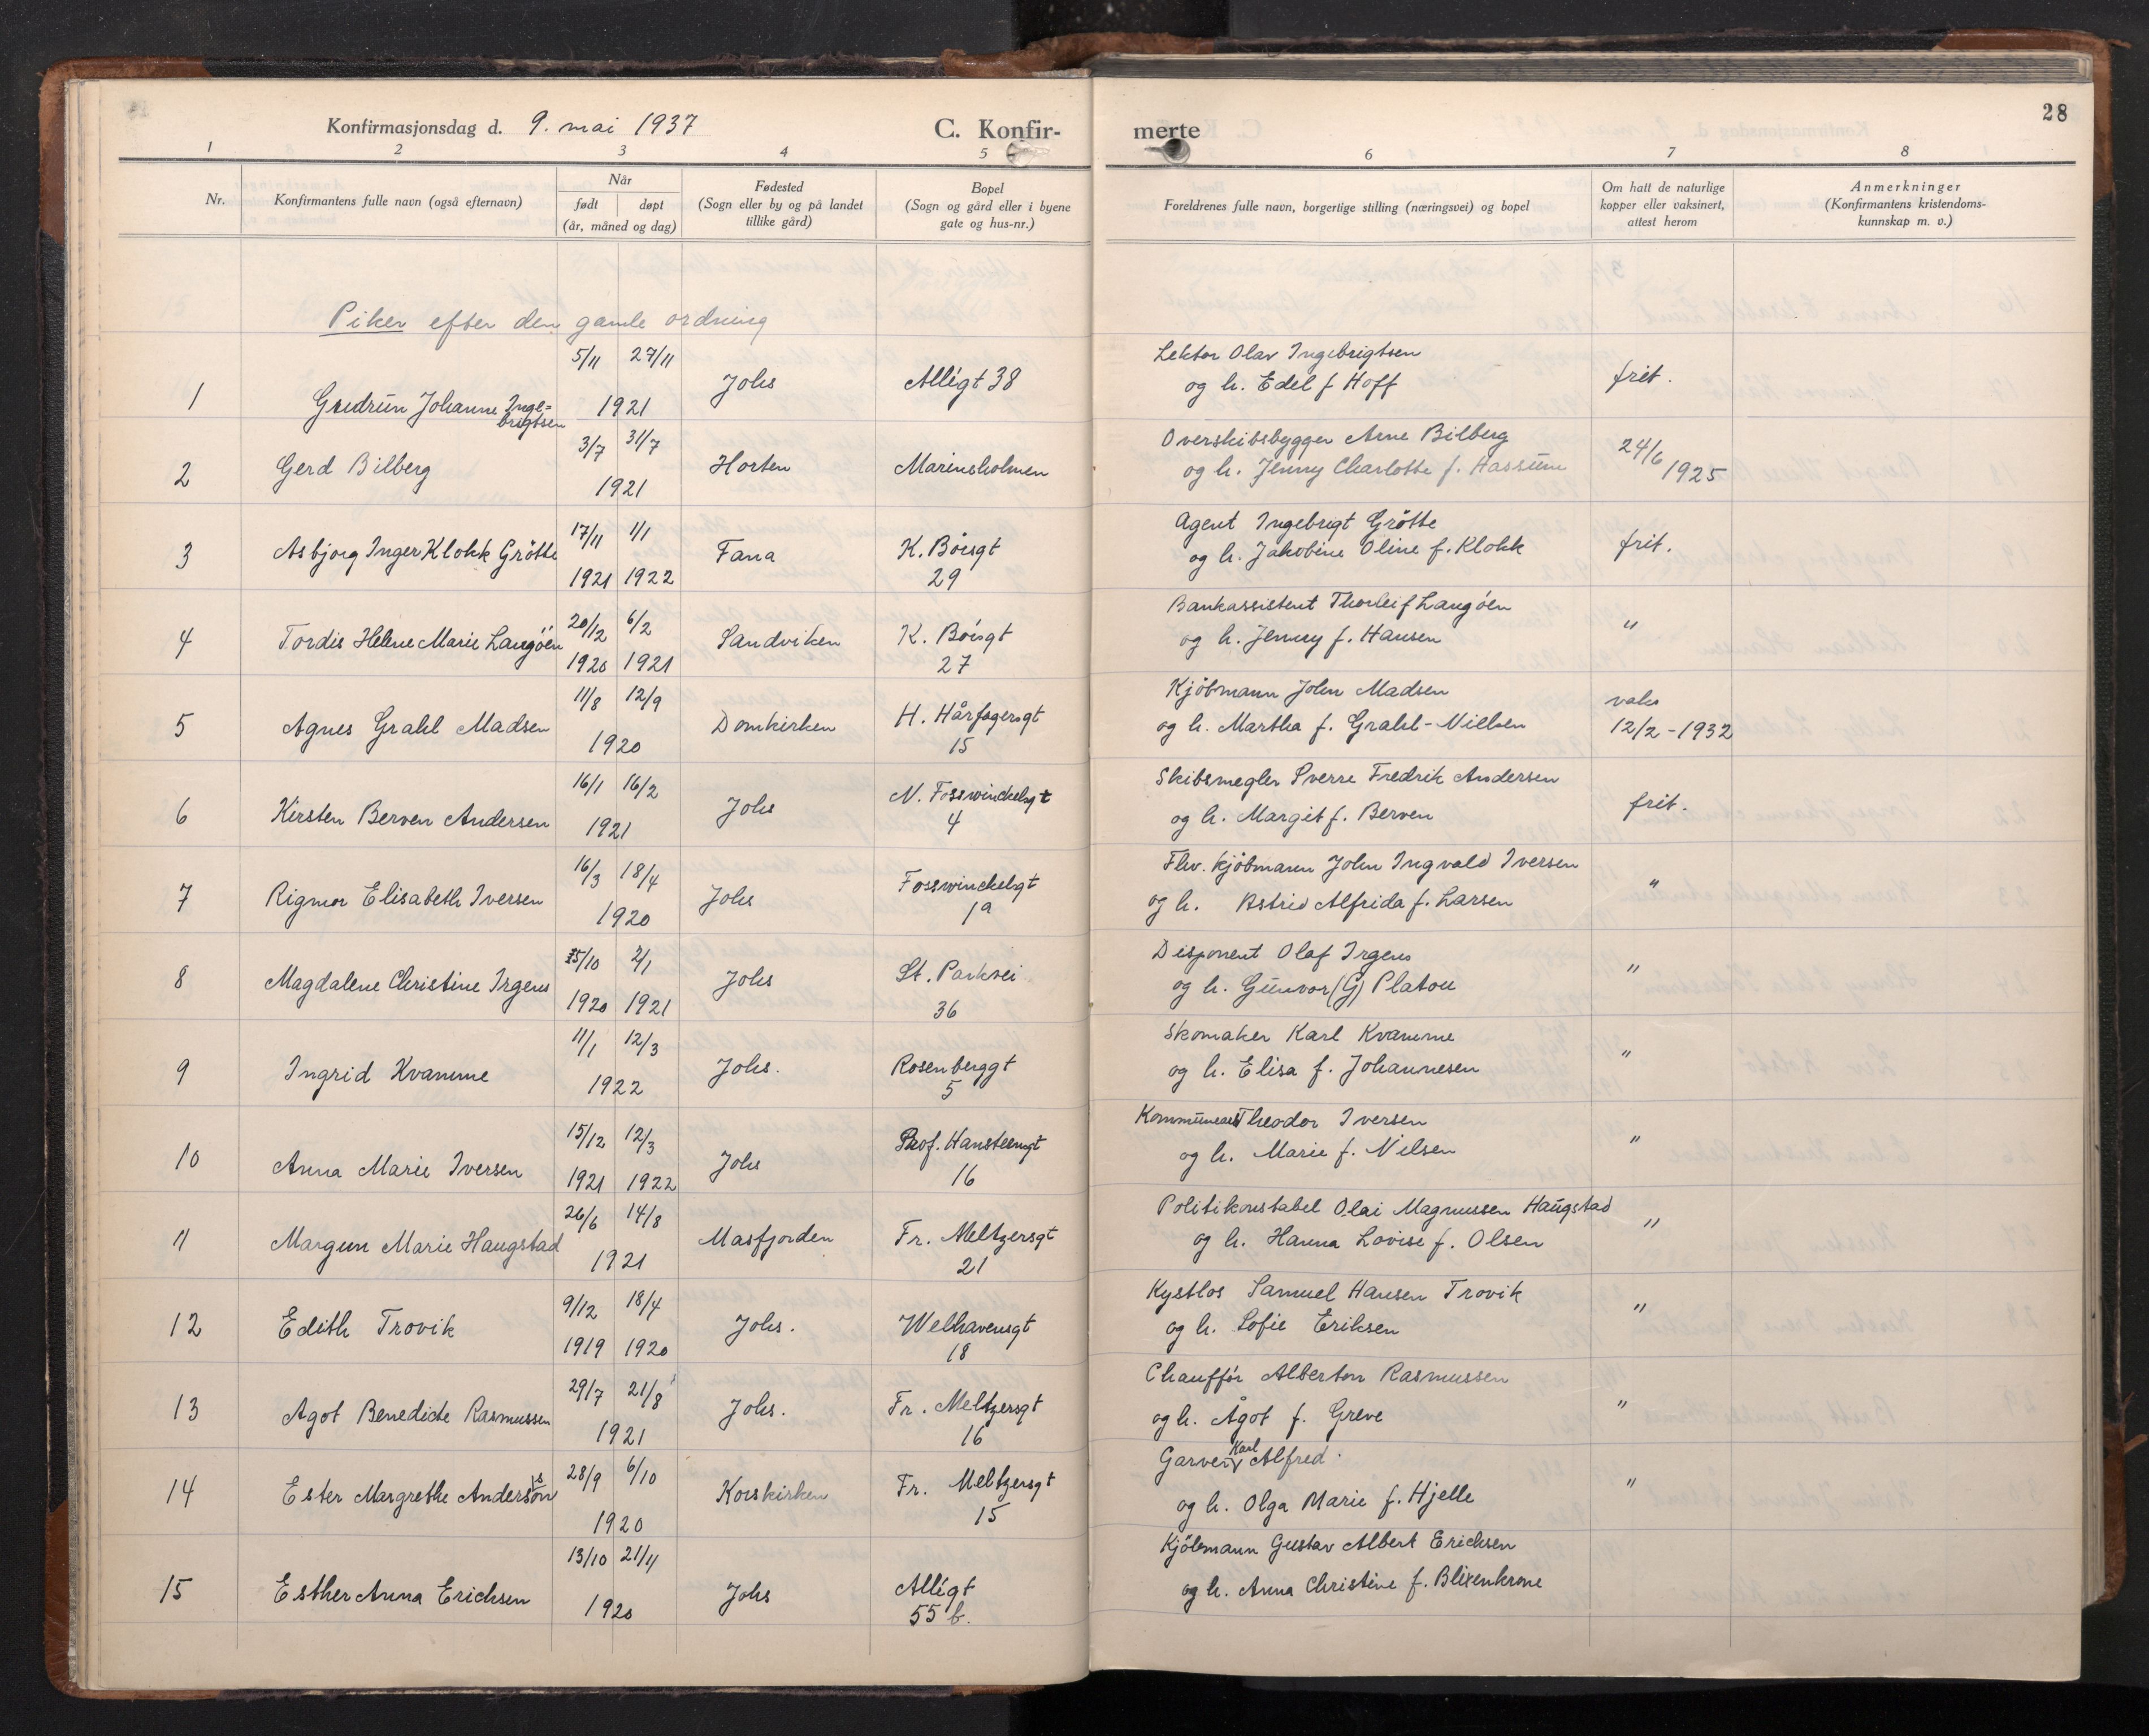 28
Konfirmasjonsdag d. 9. mai 1937
C. Konfir-
merte
1 2 3 4 5 6 7 8
Nr.
Konfirmantens fulle navn (også efternavn)
Når
født døpt
(år, måned og dag)
Fødested
(Sogn eller by og på landet
tillike gård)
Bopel
(Sogn og gård eller i byene
gate og hus-nr.)
Foreldrenes fulle navn, borgertige stilling (næringsvei) og bopel
Om hatt de naturlige
kopper eller vaksinert,
attest herom
Anmerkninger
(Konfirmantens kristendoms-
kunnskap m. v.)
Piker efter den gamle ordning
5/11 27/11 Lektor Olav Ingebrigtsen
1 Gudrun Johanne Inge= 1921 Johs Allégt 38 og h. Edel f Hoff frit.
brigtsen
3/7 31/7 Overskibsbygger Arne Bilberg 24/6
2 Gerd Bilberg 1921 Horten Marineholmen og h. Jenny Charlotte f. Hassum 1925
17/11 1/1 K. Böisgt Agent Ingebrigt Grötte
3 Asbjorg Inger Klokk Grötte Fana og h. Jakobine Oline f. Klokk frit.
1921 1922 29
20/12 6/2 Bankassistent Thorleif Langöen
4 Tordis Helene Marie Langöen Sandviken K. Böisgt og h. Jenny f. Hansen "
1920 1921 27
11/8 12/9 H. Hårfagersgt Kjöbmann John Madsen vaks
5 Agnes Grahl Madsen 1920 Domkirken 15 og h. Martha f. Grahl-Nielsen 12/2-1932
16/1 16/2 N. Fosswinckelsgt Skibsmegler Sverre Fredrik Andersen
6 Kirsten Berven Andersen 1921 Johs 4 og h. Margit f. Berven frit.
16/3 18/4 Fosswinckelsgt Fhv. kjöbmann John Ingvald Iversen
7 Rigmor Elisabeth Iversen 1920 Johs 1a og h. Astrid Alfrida f. Larsen "
/10 2/1 St. Parkvei Disponent Olaf Irgens
8 Magdalene Christine Irgens Johs og h. Gunvor (G) Platou "
1920 1921 36
11/1 12/3 Rosenberggt Skomaker Karl Kvamme
9 Ingrid Kvamme 1922 Johs. 5 og h. Elisa f. Johannesen "
15/12 12/3 Prof. Hansteensgt Theodor Iversen
10 Anna Marie Iversen Johs og h. Marie f. Nilsen "
1921 1922 16
26/6 14/8 Politikonstabel Olai Magnussen Haugstad
11 Margun Marie Haugstad 1921 Masfjorden Fr. Meltzersgt og h. Hanna Lovise f. Olsen "
21
9/12 18/4 Kystlos Samuel Hansen Trovik
12 Edith Trovik Johs. Welhavensgt og h. Sofie Eriksen "
1919 1920 18
29/7 21/8 Chauffór Alberton Rasmussen
13 Agot Benedicte Rasmussen 1921 Johs. Fr. Meltzersgt og h. Ågot f. Greve "
16
28/9 6/10 Garver Karl Alfred
14 Ester Margrethe Anderson 1920 Korskirken Fr. Meltzersgt og h. Olga Marie f. Hjelle "
15
13/10 21/11 Kjöbmann Gustav Albert Erichsen
15 Esther Anna Erichsen 1920 Johs Allégt og h. Anna Christine f. Blixenkrone
55 b.